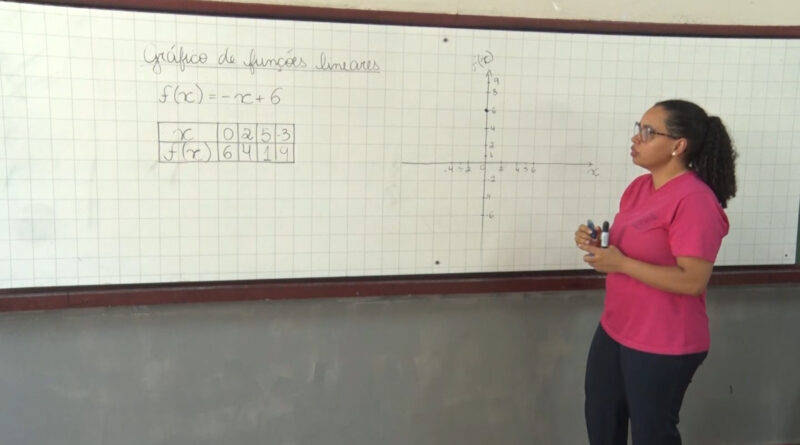 Gráfico de funções lineares
f(x) = -x + 6
x 0 2 5 -3
f(x) 6 4 1 9
f(x)
9
8
6
4
2
1
-4 -3 -2 0 2 4 5 6 x
-2
-6